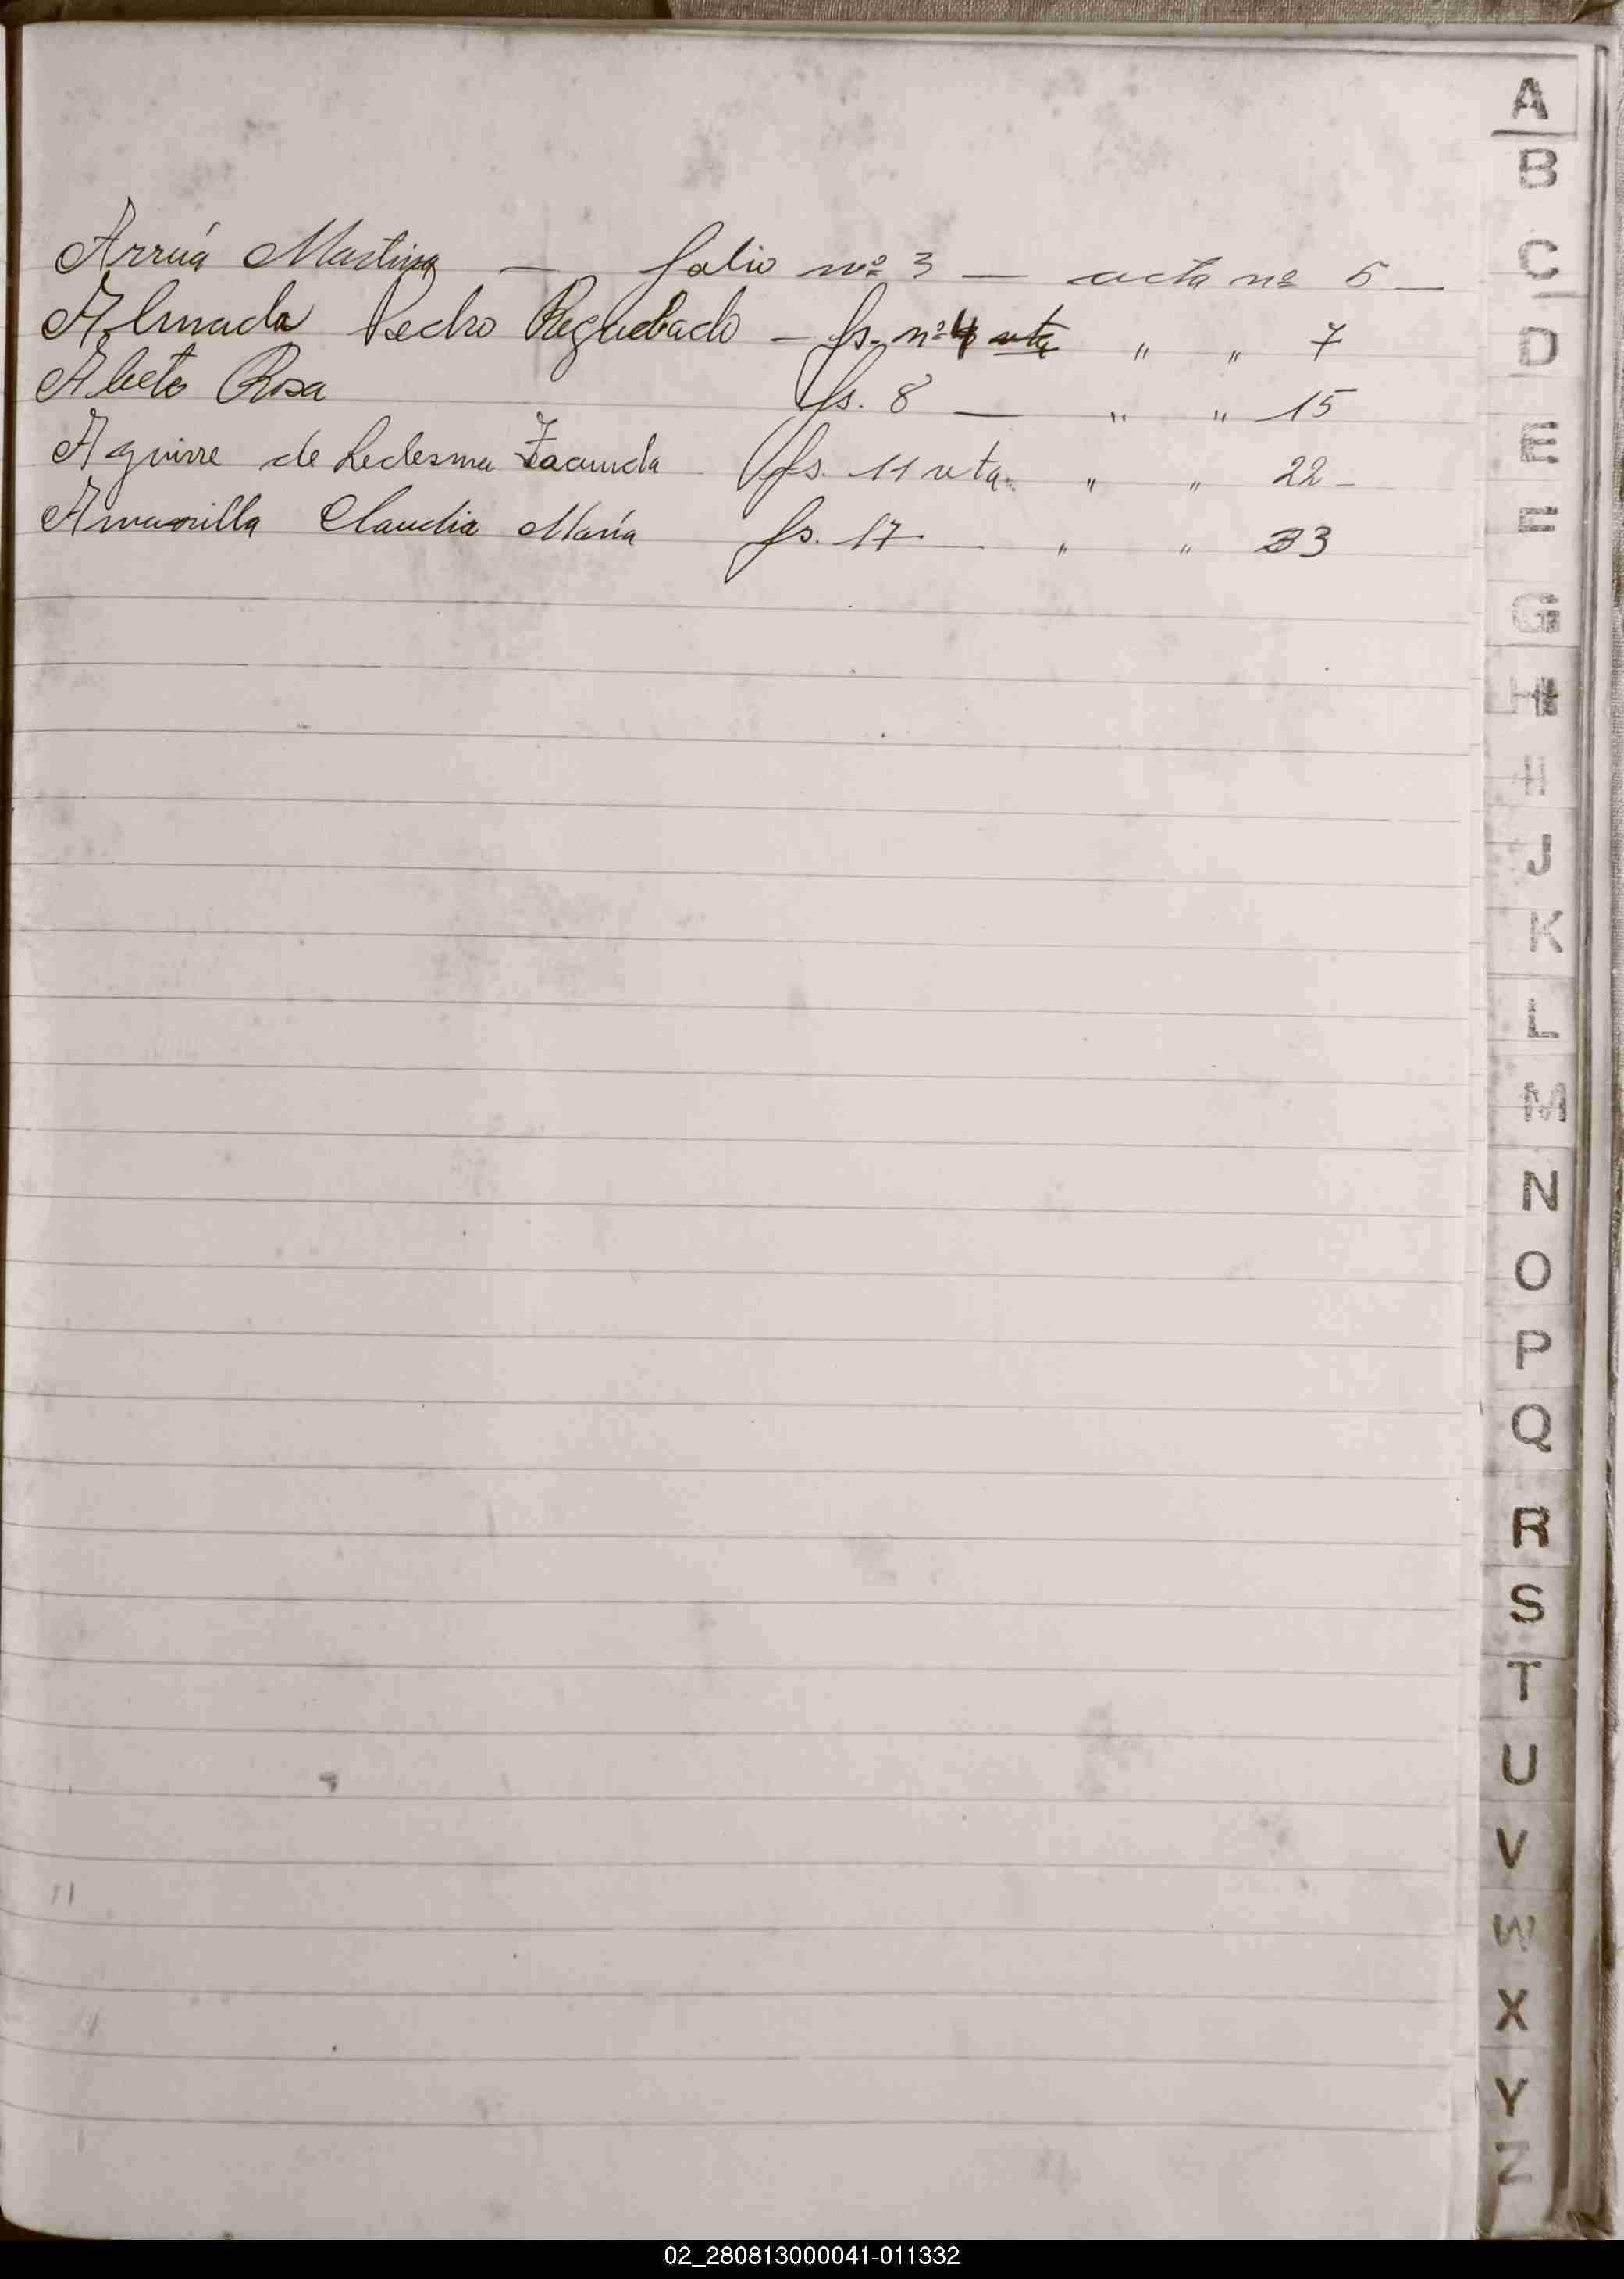 Arrúa Martina — folio nº 3 — acta nº 5 —
Almada Pedro Reguebado — fs. nº 4 vta " " 7
Abeto Rosa fs. 8 — " " 15
Aguirre de Ledesma Facunda fs. 11 vta. " " 22 -
Amarilla Claudia María fs. 17 — " " 33
A
B
C
D
E
F
G
H
I
J
K
L
M
N
O
P
Q
R
S
T
U
V
W
X
Y
Z
02_280813000041-011332